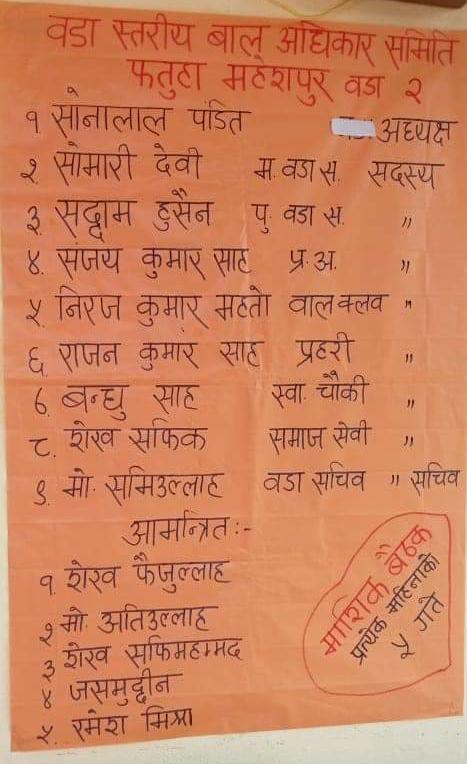 वडा स्तरीय बाल अधिकार समिति
फतुहा महेशपुर वडा २
१ सोनालाल पंडित अध्यक्ष
२ सोमारी देवी म. वडा स. सदस्य
३ सद्दाम हुसैन पु. वडा स. "
४. संजय कुमार साह प्र.अ. "
५ निरज कुमार महतो वालक्लव "
६ राजन कुमार साह प्रहरी "
७. बन्धु साह स्वा. चौकी "
८. शेख सफिक समाज सेवी "
९. मो. समिउल्लाह वडा सचिव " सचिव
आमन्त्रित :-
१. शेख फैजुल्लाह
२ मो. अतिउल्लाह
३ शेख सफिमहम्मद
४ जसमुद्दीन
५. रमेश मिश्रा
माशिक बैठक
प्रत्येक महिनाको
५ गते